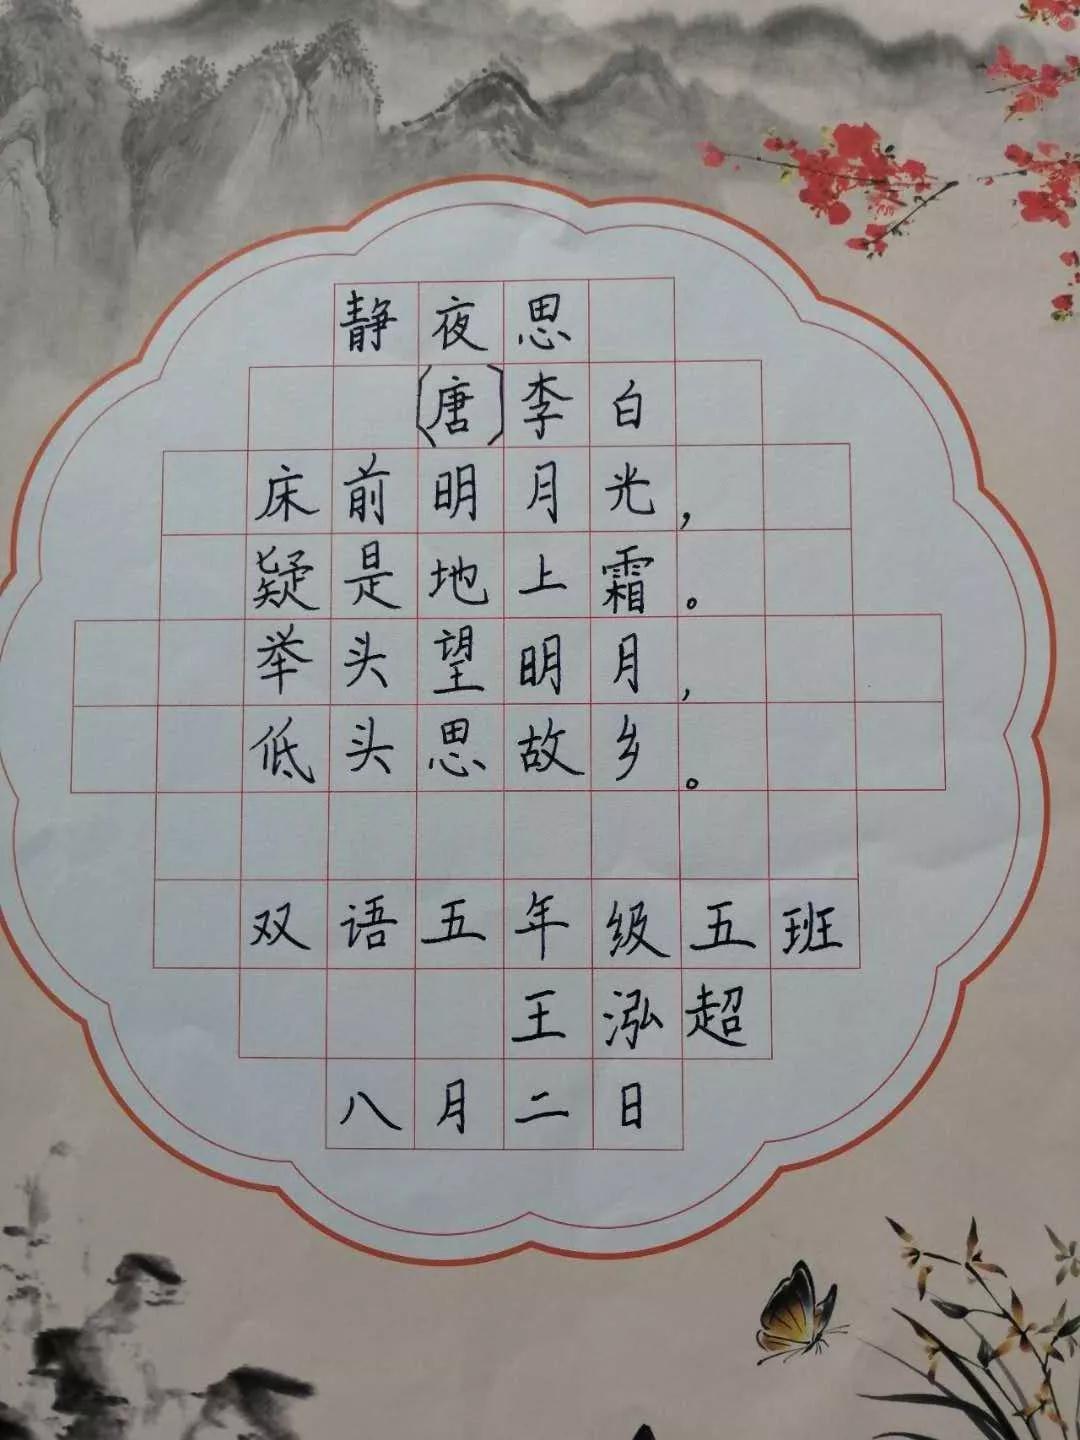 静夜思
〔唐〕李白
床前明月光，
疑是地上霜。
举头望明月，
低头思故乡。
双语五年级五班
王泓超
八月二日